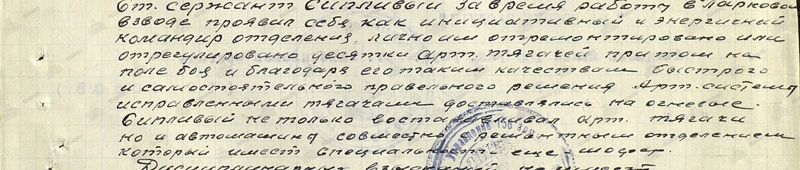 Ст. сержант Сипливый за время работы в парковом
взводе проявил себя, как инициативный и энергичный
командир отделения, лично им отремонтировано или
отрегулировано десятки арт. тягачей притом на
поле боя и благодаря его таким качествам быстрого
и самостоятельного правельного решения Арт. система
исправленными тягачами доставлялись на огневые.
Сипливый не только востанавливал арт. тягачи
но и автомашины совместно с ремонтным отделением
который имеет специальность еще шофер.
Дисциплинарных взысканий не имеет
Управление 156